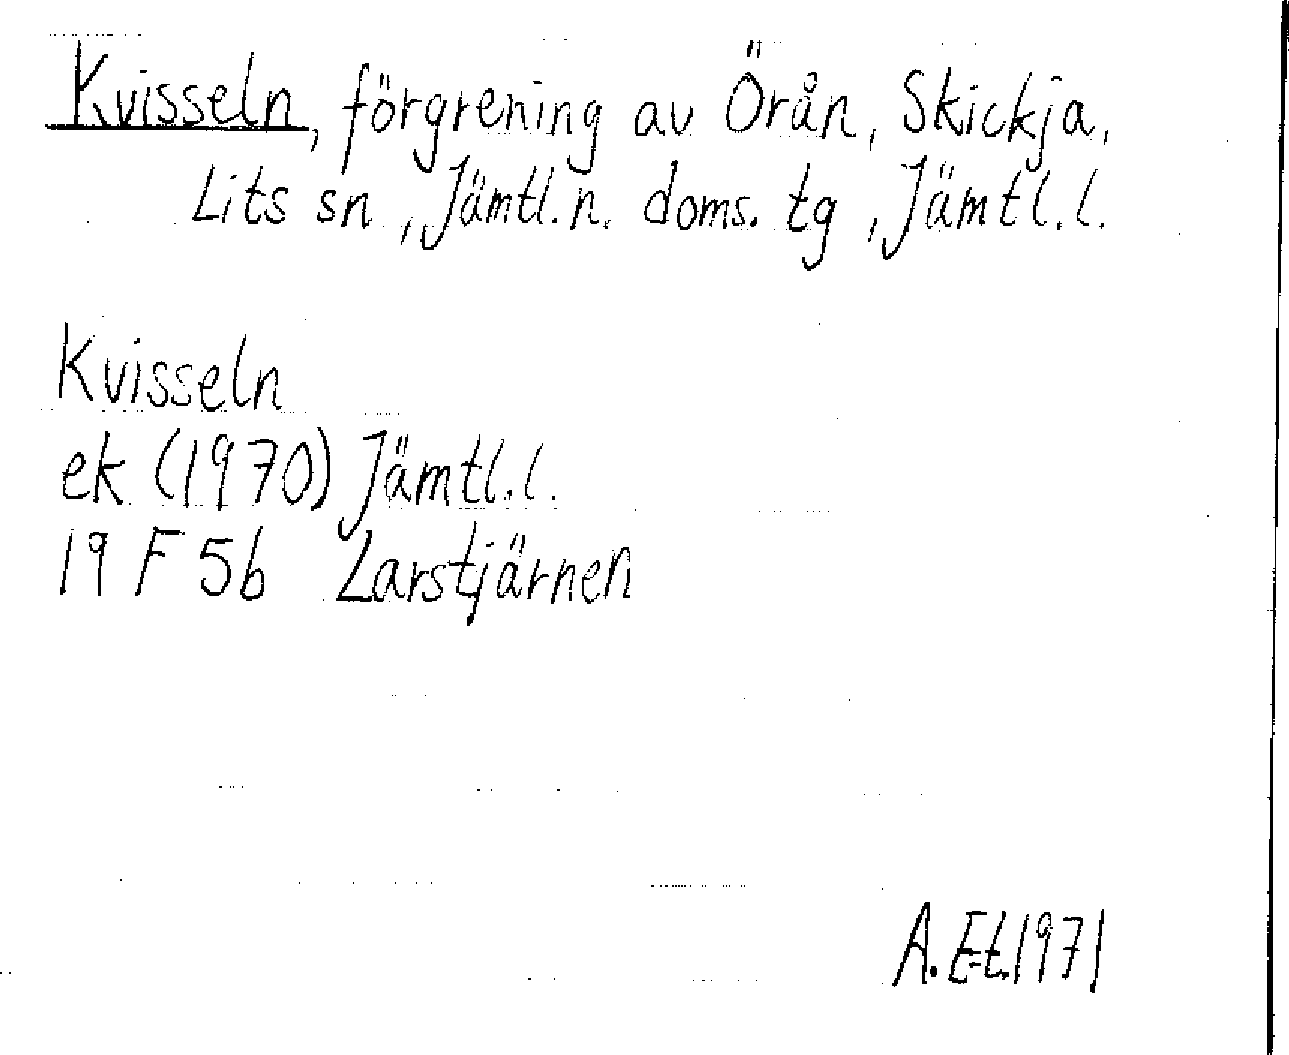 Kvisseln, förgrening av Örån, Skickja,
Lits sn, Jämtl. n. doms. tg, Jämtl. l.
Kvisseln
ek (1970) Jämtl. l.
19 F 5b Larstjärnen
A. E-t. 1971